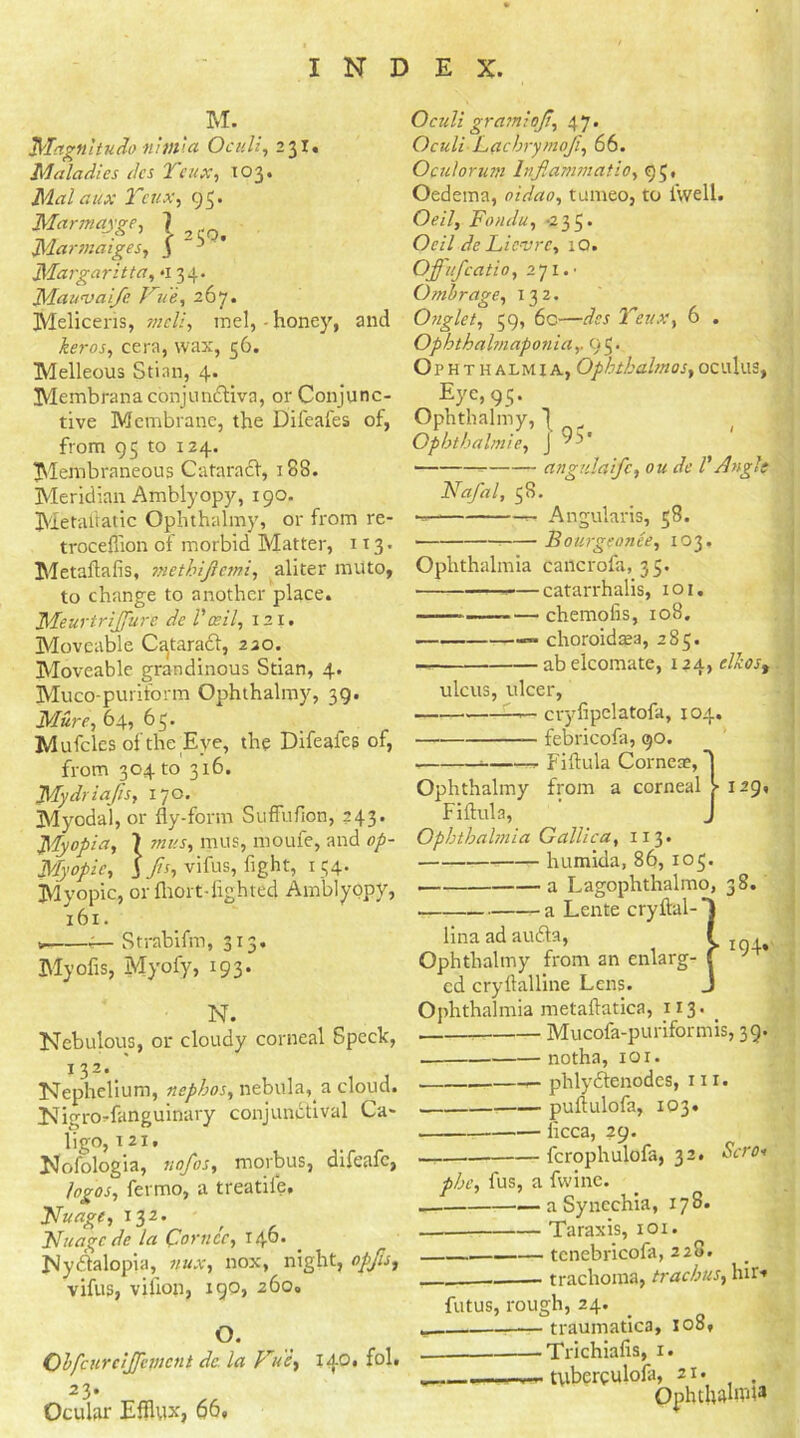 INDEX.
M.
Magnitudo nimia Oculi, 231.
Maladies des Yeux, 103.
Mal aux Yeux, 95.
Marmayge, }
Marmaiges, } 250.
Margaritta, 134.
Mauvaise Vuë, 267.
Meliceris, meli, mel, honey, and
keros, cera, wax, 56.
Melleous Stian, 4.
Membrana conjunctiva, or Conjunc-
tive Membrane, the Diseases of,
from 95 to 124.
Membraneous Cataract, 188.
Meridian Amblyopy, 190.
Metastatic Ophthalmy, or from re-
trocession of morbid Matter, 113.
Metastasis, methistemi, aliter muto,
to change to another place.
Meurtrissure de l'œil, 121.
Moveable Cataract, 220.
Moveable grandinous Stian, 4.
Muco-puriform Ophthalmy, 39.
Mûre, 64, 65.
Muscles of the Eye, the Diseases of,
from 304 to 316.
Mydriasis, 170.
Myodal, or fly-form Suffusion, 243.
Myopia, } mus, mus, mouse, and op-
Myopie, } sis, visus, sight, 154.
Myopic, or short-sighted Amblyopy,
161.
—— Strabism, 313.
Myosis, Myosy, 193.
N.
Nebulous, or cloudy corneal Speck,
132.
Nephelium, nephos, nebula, a cloud.
Nigro-sanguinary conjunctival Ca-
ligo, 121.
Nosologia, nosos, morbus, disease,
logos, sermo, a treatise.
Nuage, 132.
Nuage de la Cornée, 146.
Nyctalopia, nux, nox, night, opsis,
visus, vision, 190, 260.
O.
Obscurcissement de la Vuë, 140. fol.
23.
Ocular Efflux, 66.
Oculi gramiosi, 47.
Oculi Lachrymosi, 66.
Oculorum Inflammatio, 95.
Oedema, oidao, tumeo, to swell.
Oeil, Fondu, 235.
Oeil de Lievre, 10.
Offuscatio, 271.
Ombrage, 132.
Onglet, 59, 60—des Yeux, 6 .
Ophthalmaponia, 95.
OPHTHALMIA, Ophthalmos, oculus,
Eye, 95.
Ophthalmy, }
Ophthalmie, } 95.
—— angulaise, ou de l'Angle
Nasal, 58.
—— Angularis, 58.
—— Bourgeonée, 103.
Ophthalmia cancrosa, 35.
—— catarrhalis, 101.
—— chemosis, 108.
—— choroidæa, 285.
—— ab elcomate, 124, elkos,
ulcus, ulcer,
—— crysipelatosa, 104.
—— febricosa, 90.
—— Fistula Corneæ, }
Ophthalmy from a corneal } 129,
Fistula, }
Ophthalmia Gallica, 113.
—— humida, 86, 105.
—— a Lagophthalmo, 38.
—— a Lente crystal- }
lina ad aucta, } 194.
Ophthalmy from an enlarg- }
ed crystalline Lens. }
Ophthalmia metastatica, 113.
—— Mucosa-puriformis, 39.
—— notha, 101.
—— phlyctenodes, 111.
—— pustulosa, 103.
—— sicca, 29.
—— scrophulosa, 32. Scro-
phe, sus, a swine.
—— a Synechia, 178.
—— Taraxis, 101.
—— tenebricosa, 228.
—— trachoma, trachus, hir-
sutus, rough, 24.
—— traumatica, 108,
—— Trichiasis, 1.
—— tuberculosa, 21.
Ophthalmia